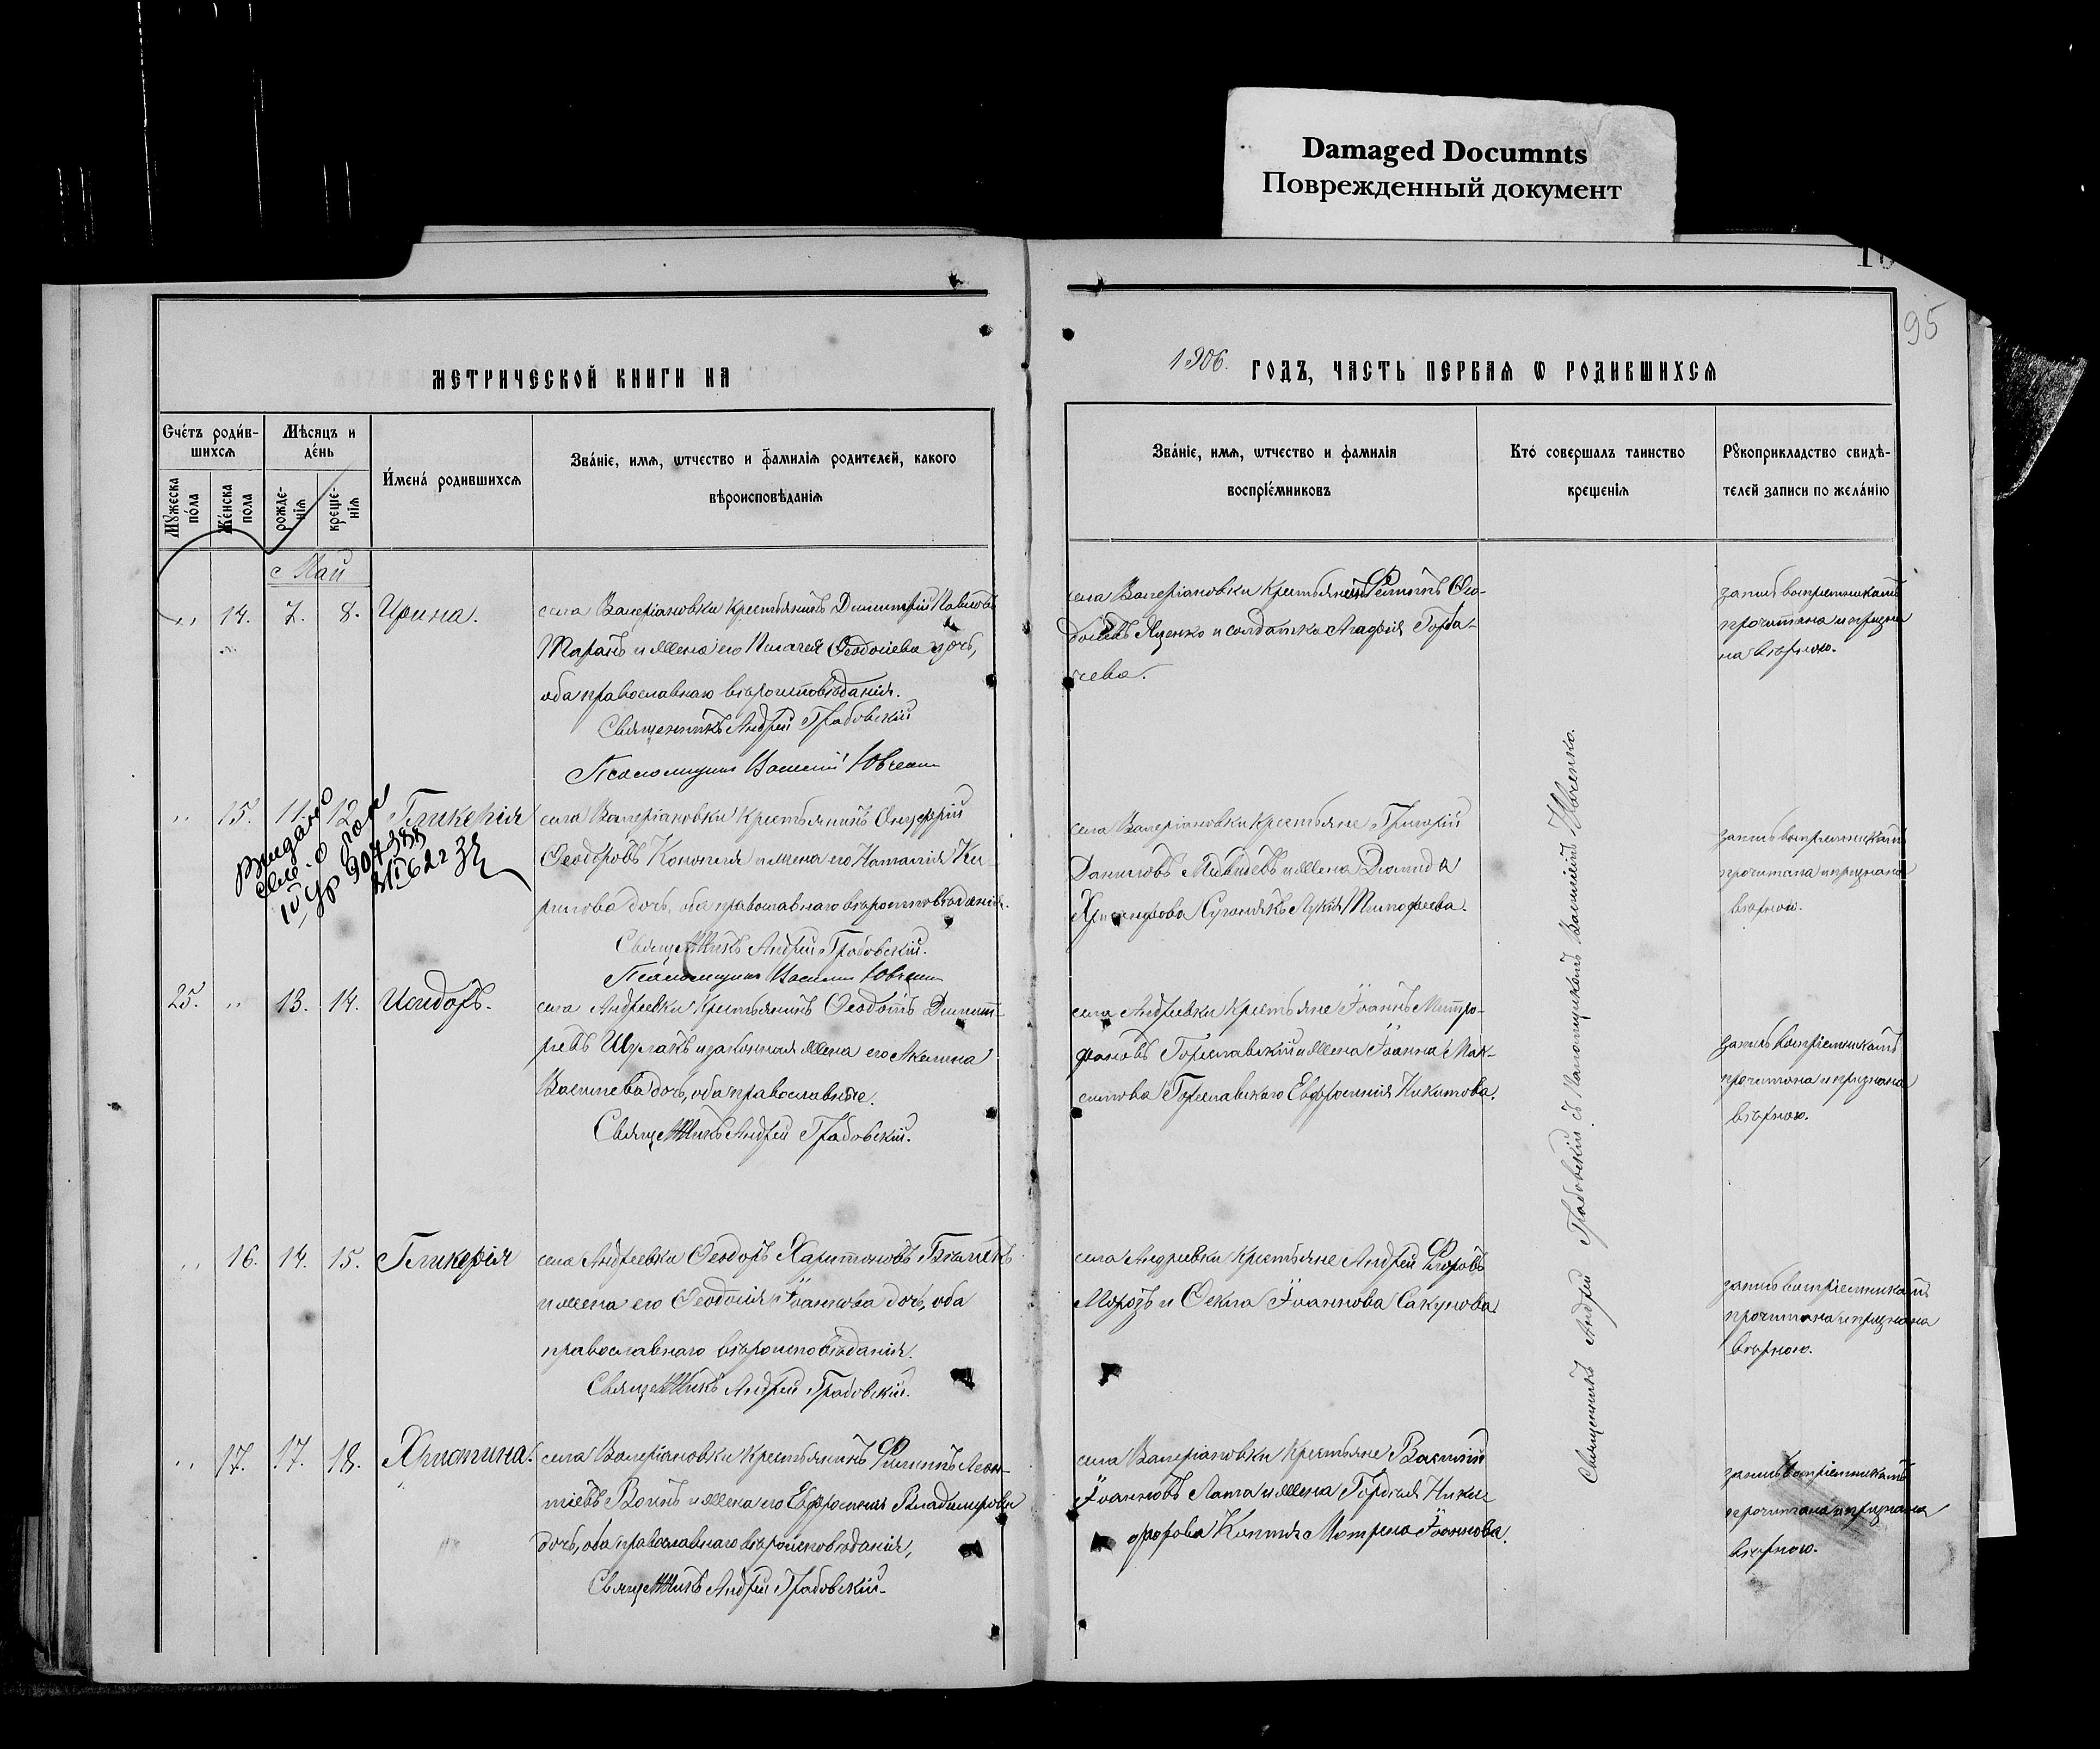 Damaged Documnts
Поврежденный документ
95
МЕТРИЧЕСКОЙ КНИГИ НА
1906. ГОДЪ, ЧАСТЬ ПЕРВАЯ Ѡ РОДИВШИХСЯ
Счетъ родив-
шихся
Мужеска пола
Женска пола
Мѣсяцъ и
день
рожде-
нія
креще-
нія
Имена родившихся
Званіе, имя, ѡтчество и фамилія родителей, какого
вѣроисповѣданія
Званіе, имя, ѡтчество и фамилія
воспріемниковъ
Кто совершалъ таинство
крещенія
Рукоприкладство свидѣ-
телей записи по желанію
Май
14. 7. 8. Ирина.
села Валеріановки крестьянинъ Димитрій Павловъ
Таранъ и жена его Пелагея Ѳеодосіева дочь,
оба православнаго вѣроисповѣданія.
Священникъ Андрей Грабовскій
Псаломщикъ Василій Ювченко
села Валеріановки крестьянинъ Филиппъ Ѳео-
досіевъ Яценко и солдатка Агафія Горба-
чева.
запись воспріемникамъ
прочитана и призна
на вѣрною.
15. 11. 12. Гликерія
Видано
села Валеріановки крестьянинъ Онуфрій
Ѳеодоровъ Конопля и жена его Наталія Ки-
рилова дочь, оба православнаго вѣроисповѣданія.
Священникъ Андрей Грабовскій.
Псаломщикъ Василій Ювченко
села Валеріановки крестьяне Григорій
Даниловъ и жена Діомида
Лукія Тимофеева.
запись воспріемникамъ
прочитана и признана
вѣрною.
25. 13. 14. Исидоръ.
села Андреевки крестьянинъ Ѳеодотъ Димит-
ріевъ Шулякъ и законная жена его Акилина
Васильева дочь, оба православные.
Священникъ Андрей Грабовскій.
села Андреевки крестьяне Іоаннъ Митро-
фановъ Гореславскій и жена Іоанна Мак-
симова Гореславскаго Евфросинія Никитова.
запись воспріемникамъ
прочитана и признана
вѣрною.
16. 14. 15. Гликерія
села Андреевки Ѳеодоръ Харитоновъ
и жена его Ѳеодосія Іоаннова дочь, оба
православнаго вѣроисповѣданія.
Священникъ Андрей Грабовскій.
села Андреевки крестьяне Андрей
Морозъ и Ѳекла Іоаннова Сакунова.
запись воспріемникамъ
прочитана и признана
вѣрною.
17. 17. 18. Христина.
села Валеріановки крестьянинъ Филиппъ Леон-
тіевъ и жена его Евфросинія Владимирова
дочь, оба православнаго вѣроисповѣданія,
Священникъ Андрей Грабовскій.
села Валеріановки крестьяне Василій
Іоанновъ Лата и жена Гордѣя Ники-
форова Матрена Іоаннова.
запись воспріемникамъ
прочитана и признана
вѣрною.
Священникъ Андрей Грабовскій съ псаломщикомъ Василіемъ Ювченко.